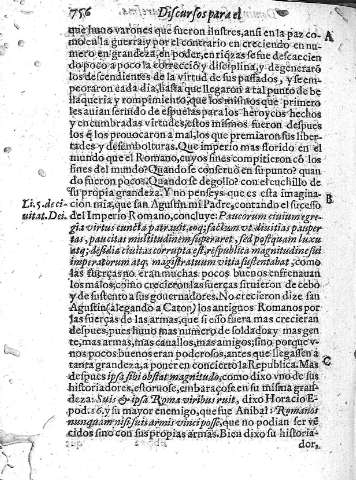 756 Discursos para el
que huuo varones que fueron ilustres, ansi en la paz co- A
mo en la guerra: y por el contrario en creciendo en nu-
mero, en grandeza, en poder, en riqzas se fue descaecien
do poco a poco la correcciõ, y disciplina, y degeneraró
los descendientes de la virtud de sus passados, y se em-
peoraron cada dia, hasta que llegaron a tal punto de be
llaqueria y rompimiento, que los mismos que primero
les auian seruido de espuelas para los heroycos hechos
y encumbradas virtudes, estos mismos fueron despues
los q̃ los prouocaron a mal, los que premiaron sus liber-
tades y desembolturas. Que imperio mas florido en el
mundo que el Romano, cuyos fines compitieron cõ los
fines del mundo? Quando se conseruó en su punto? quan
do fueron pocos. Quando se degollò? con el cuchillo de
su propia grandeza. Y no penseys que es esta imagina- B
Li. 5. de ci- cion mia, que san Agustin mi Padre, contando el sucesso
uitat. Dei. del Imperio Romano, concluye: Paucorum ciuium egre-
gia virtus cuncta patrauit, eoq; factum vt diuitias pauper
tas, paucitas multitudinem superaret, sed postquam luxu
atq; desidia ciuitas corrupta est, respublica magnitudine sua
imperatorum atq; magistratuum vitia sustentabat, como
las fuerças no eran muchas, pocos buenos enfrenauan
los malos, como crecieron las fuerças siruieron de cebo
y de sustento a sus gouernadores. No crecieron dize san
Agustin (alegando a Caton) los antiguos Romanos por
las fuerças de las armas, que si esso fuera mas crecieran
despues, pues huuo mas numero de soldados, y mas gen
te, mas armas, mas cauallos, mas amigos; sino porque v-
nos pocos buenos eran poderosos, antes que llegassen a C
tanta grandeza, a poner en concierto la Republica. Mas
despues ipsa sibi obstat magnitudo, como dixo vno de sus
historiadores, estoruose, embaraçose en su misma gran-
deza: Suis & ipsa Roma viribus ruit, dixo Horacio E-
pod. 16. y su mayor enemigo, que fue Anibal: Romanos
nunquam nisi suis armis vinci posse, que no podian ser vẽ
cidos sino con sus propias armas. Bien dixo su historia-
dor,